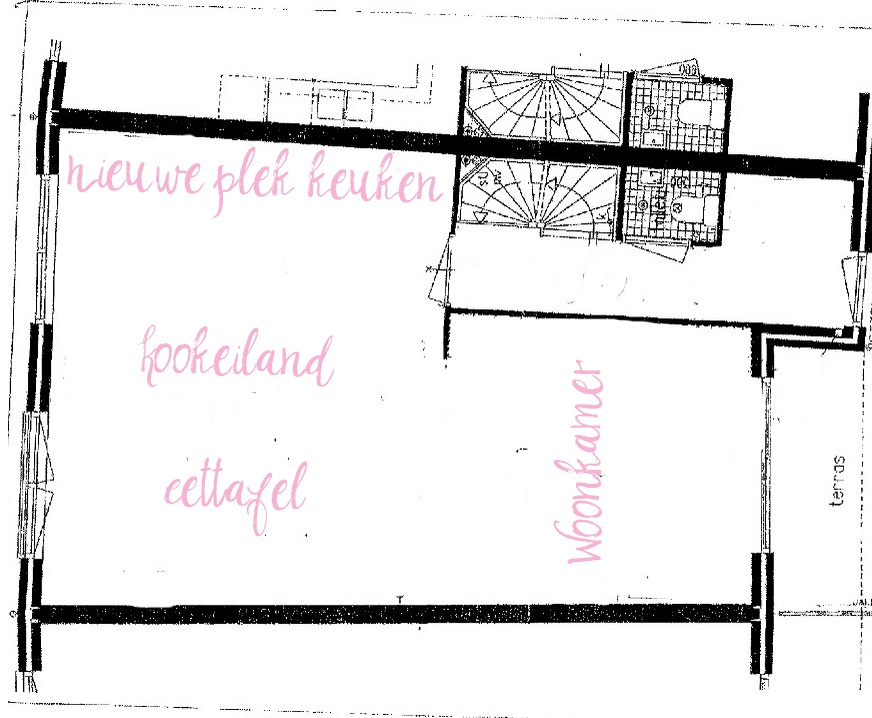 nieuwe plek keuken
kookeiland
eettafel
Woonkamer
terras